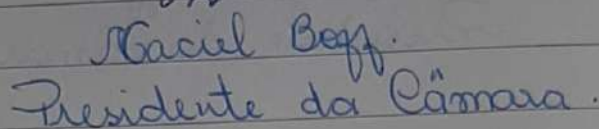 Maciel Begf.
Presidente da Câmara.